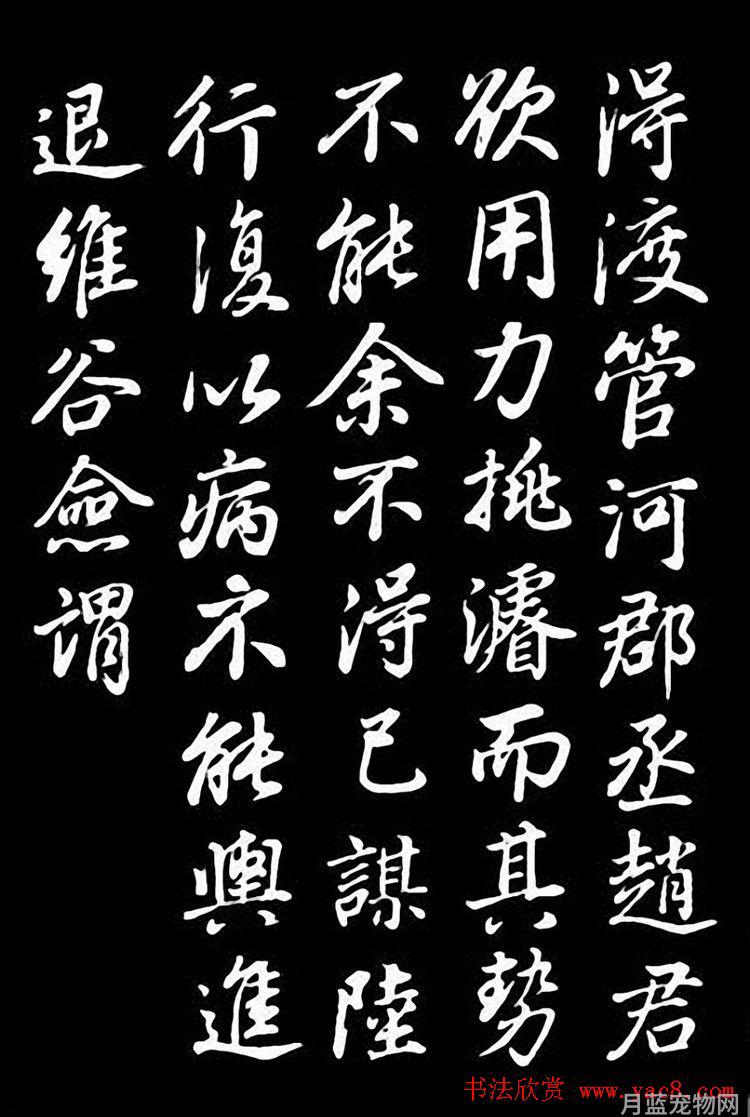 得渡管河郡丞趙君
欲用力挑濬而其勢
不能余不得已謀陸
行復以病不能輿進
退維谷僉謂
书法欣赏 www.yac8.com
月蓝宠物网